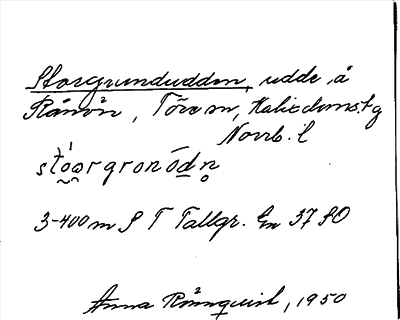 Storgrundudden, udde å
Rånön, Töre sn, Kalix domst g
Norrb. l
stòorgronódn̥
3-400 m S T Tallgr. En 37 SO
Anna Rönnquist, 1950